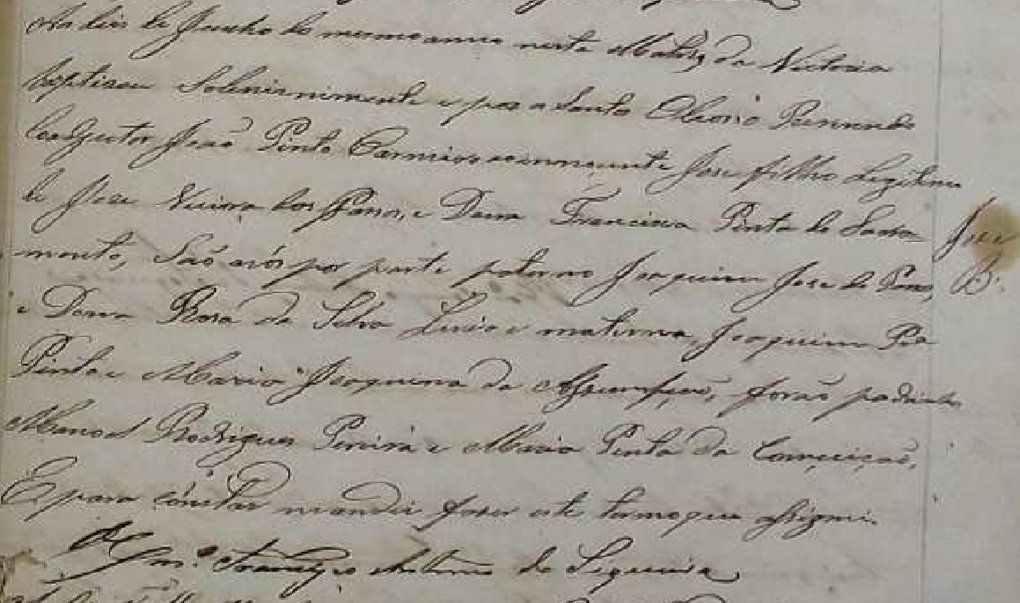 Aos dois de Junho do mesmo anno nesta Matriz da Victoria
baptisou Solemnimente e pos os Santos Oleos o Reverendo
Coadjuctor João Pinto innocente Jose filho Legitimo
de Jose Vieira dos Passos, e Dona Francisca Pinta do Sacra
mento, São avós por parte paterno Joaquim Jose de Passos,
e Dona Rosa da Silva e materna, Joaquim
Pinto e Maria Joaquina da Assumpçaõ, foraõ padrinhos
Manoel Rodrigues Pereira e Maria Pinta da Conceiçaõ,
E para constar mandei fazer este termo que assignei.
Francisco Antonio de Siqueira
Jose
B.